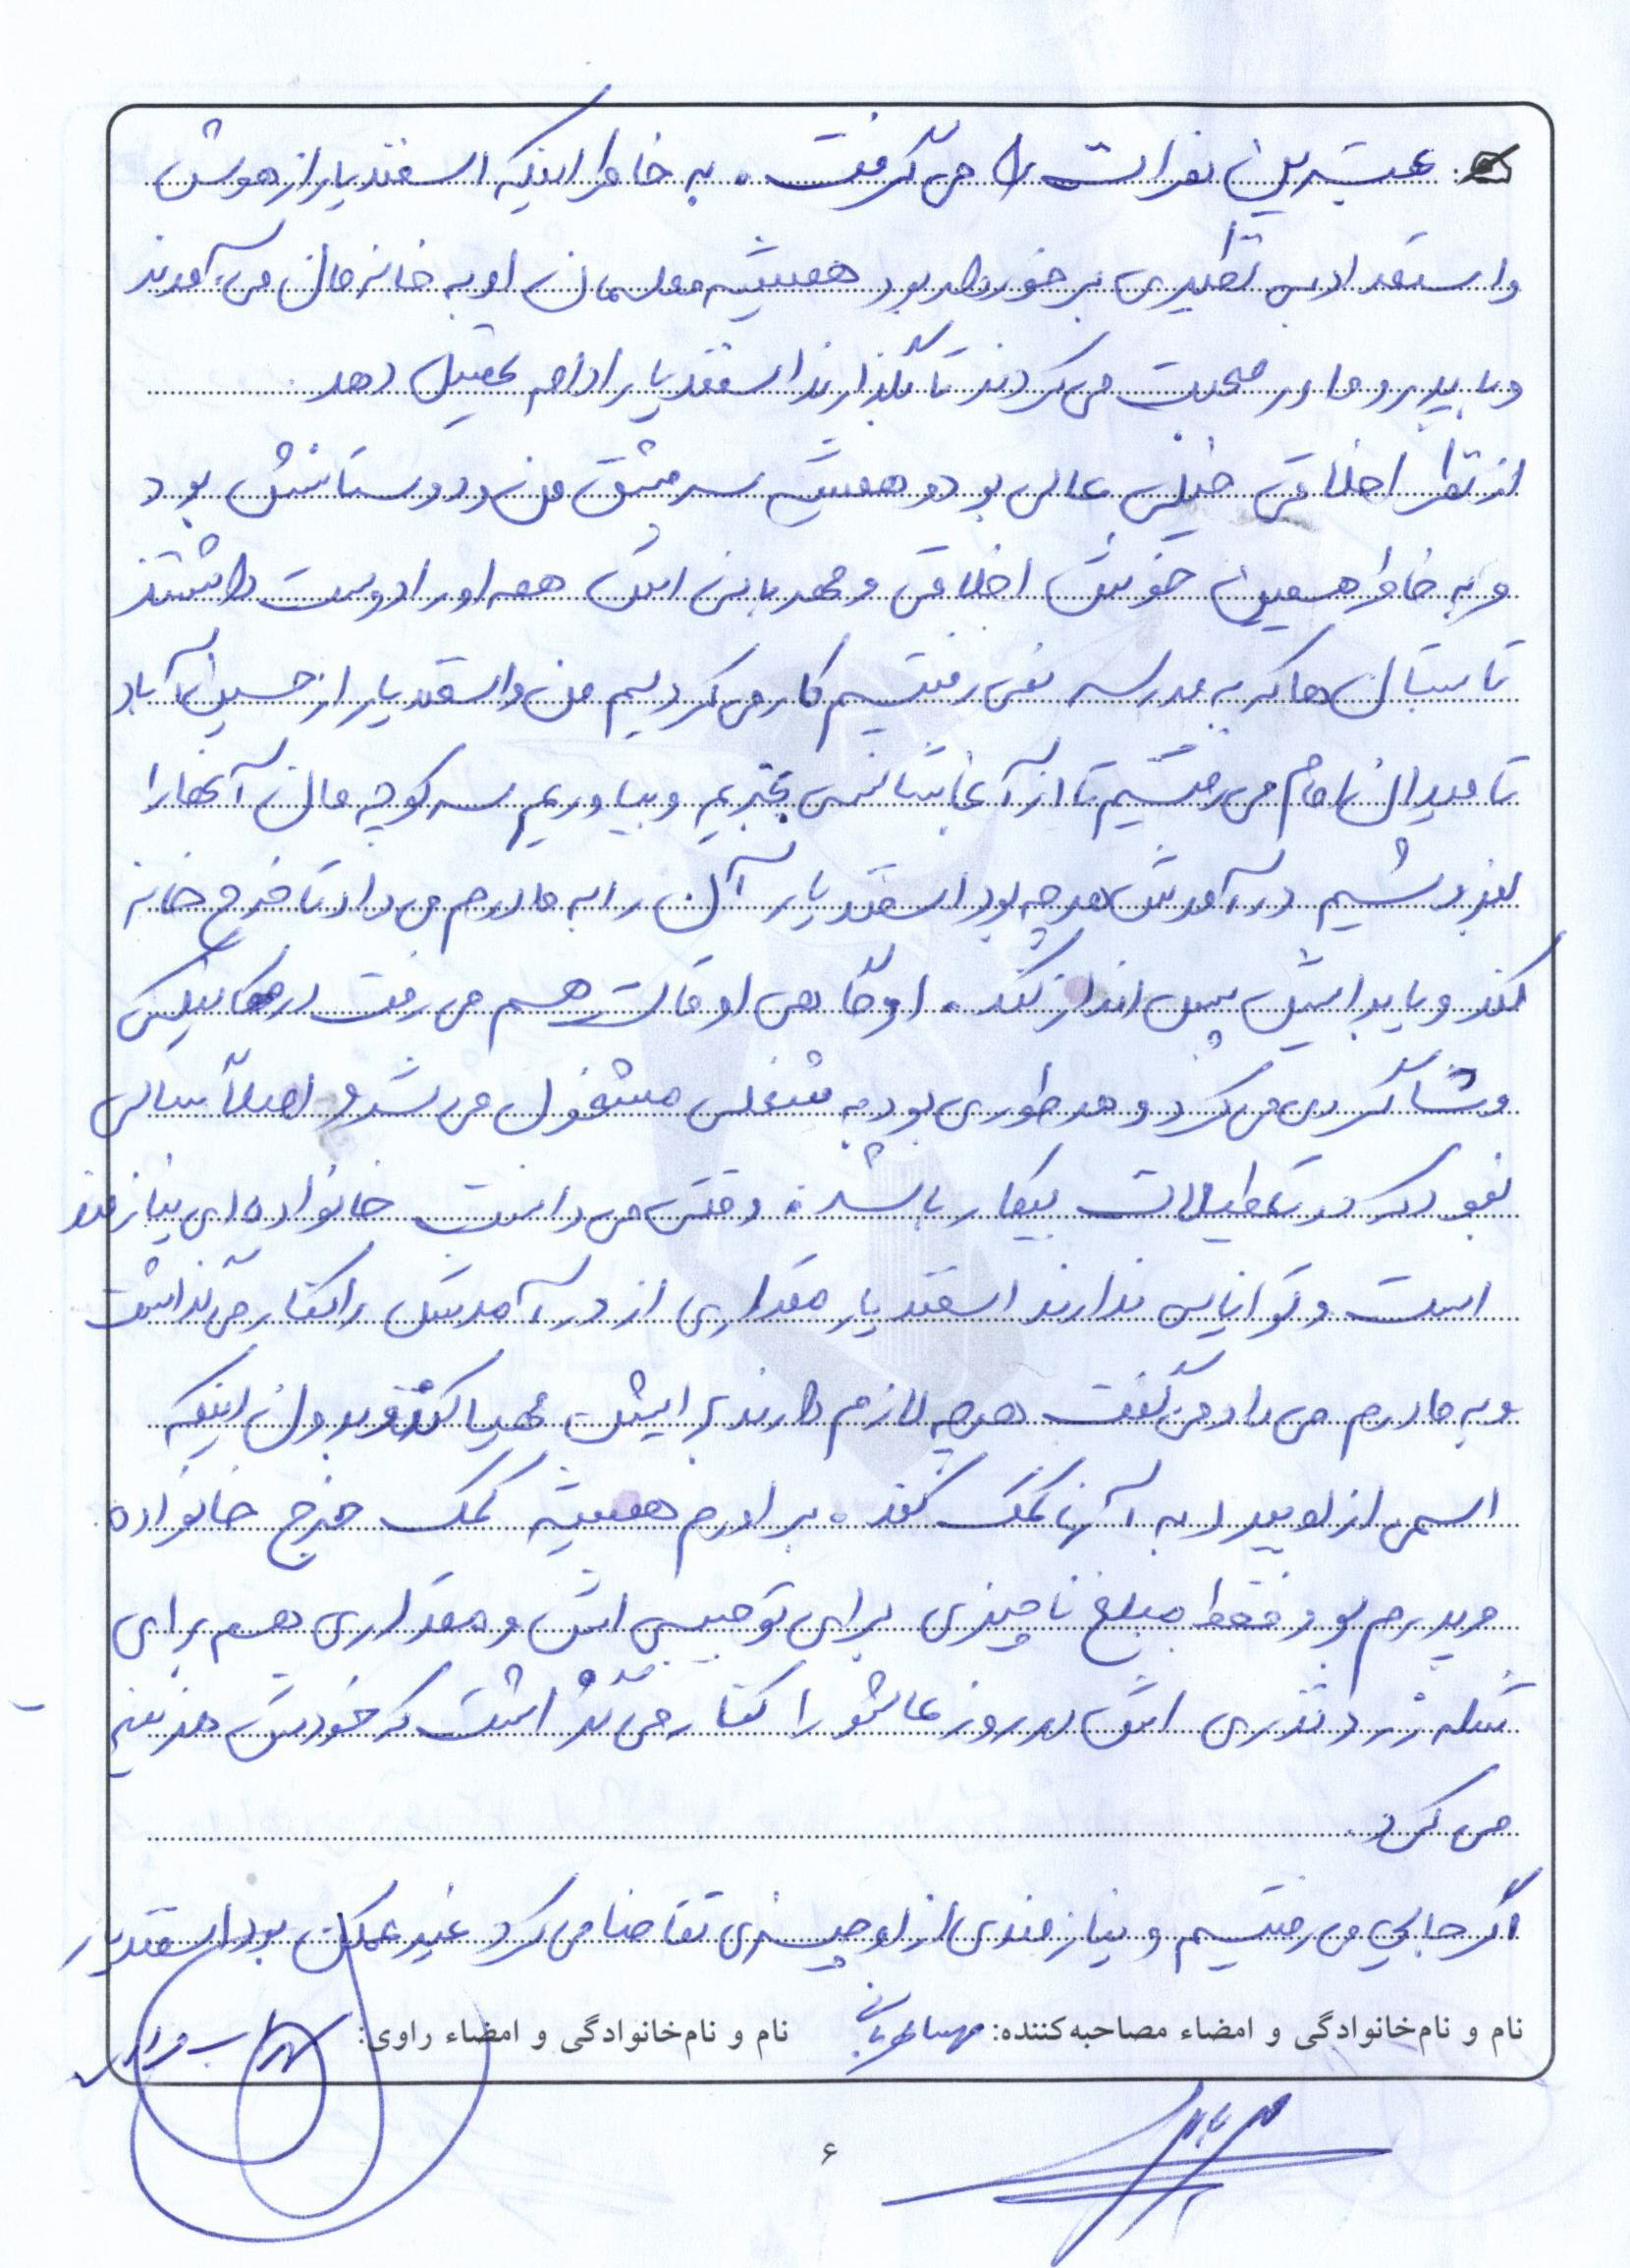 بهترین نمرات را می گرفت. به خاطر اینکه اسفندیار از هوش
و استعداد بی نظیری برخوردار بود همیشه معلمان او به خانه مان می آمدند
و با پدر و مادر صحبت می کردند تا بگذارند اسفندیار ادامه تحصیل دهد
از نظر اخلاقی خیلی عالی بود و همیشه سرمشق من و دوستانش بود
و به خاطر همین خوش اخلاقی و مهربانی اش همه او را دوست داشتند
تابستان ها که به مدرسه نمی رفتیم کار می کردیم من و اسفندیار از حسین آباد
تا میدان امام می رفتیم تا از آنجا شانسی بخریم و بیاوریم سر کوچه مان آنها را
بفروشیم درآمدش هر چه بود اسفندیار آن را به مادرم می داد تا خرج خانه
کند و یا برایش پس انداز کند. او گاهی اوقات هم می رفت در مکانیکی
و شاگردی می کرد و هر طوری بود به شغلی مشغول می شد و اصلاً سالی
نبود که در تعطیلات بیکار باشد. وقتی می دانست خانواده ای نیازمند
است و توانایی ندارند اسفندیار مقداری از درآمدش را کنار می گذاشت
و به مادرم می داد می گفت هر چه لازم دارند برایش مهیا کند و بدون اینکه
اسمی از او ببرد به آنها کمک کند. برادرم همیشه کمک خرج خانواده
و پدرم بود و فقط مبلغ ناچیزی برای توجیبی اش و مقداری هم برای
شله زرد نذری اش در روز عاشورا کنار می گذاشت که خودش هزینه
می کرد.
اگر جایی می رفتیم و نیازمندی از او چیزی تقاضا می کرد غیرممکن بود اسفندیار
نام و نام‌خانوادگی و امضاء مصاحبه‌کننده: مهسا قربانی نام و نام‌خانوادگی و امضاء راوی: سهراب
۶